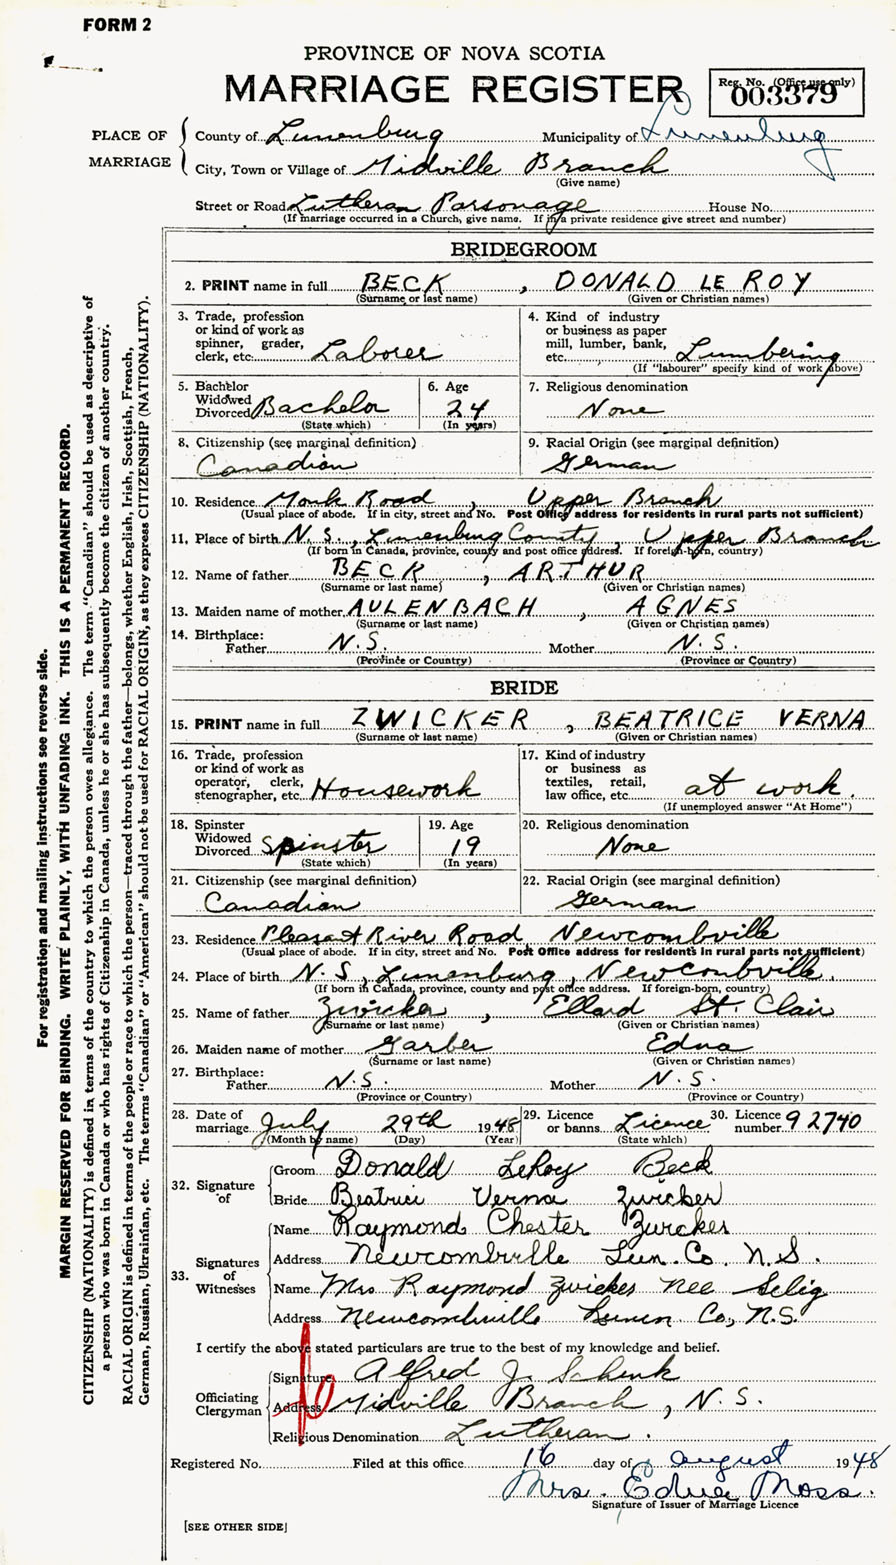 FORM 2
PROVINCE OF NOVA SCOTIA
MARRIAGE REGISTER
Reg. No. (Office use only)
003379
PLACE OF MARRIAGE
County of Lunenburg Municipality of Lunenburg
City, Town or Village of Midville Branch
(Give name)
Street or Road Lutheran Parsonage House No.
(If marriage occurred in a Church, give name. If in a private residence give street and number)
BRIDEGROOM
2. PRINT name in full BECK, DONALD LE ROY
(Surname or last name) (Given or Christian names)
3. Trade, profession or kind of work as spinner, grader, clerk, etc. Laborer
4. Kind of industry or business as paper mill, lumber, bank, etc. Lumbering
(If "labourer" specify kind of work above)
5. Bachelor Widowed Divorced Bachelor
(State which)
6. Age 24
(In years)
7. Religious denomination None
8. Citizenship (see marginal definition) Canadian
9. Racial Origin (see marginal definition) German
10. Residence Monk Road, Upper Branch
(Usual place of abode. If in city, street and No. Post Office address for residents in rural parts not sufficient)
11. Place of birth N.S., Lunenburg County, Upper Branch
(If born in Canada, province, county and post office address. If foreign-born, country)
12. Name of father BECK, ARTHUR
(Surname or last name) (Given or Christian names)
13. Maiden name of mother AULENBACH, AGNES
(Surname or last name) (Given or Christian names)
14. Birthplace:
Father N.S. Mother N.S.
(Province or Country) (Province or Country)
BRIDE
15. PRINT name in full ZWICKER, BEATRICE VERNA
(Surname or last name) (Given or Christian names)
16. Trade, profession or kind of work as operator, clerk, stenographer, etc. Housework
17. Kind of industry or business as textiles, retail, law office, etc. at work.
(If unemployed answer "At Home")
18. Spinster Widowed Divorced Spinster
(State which)
19. Age 19
(In years)
20. Religious denomination None
21. Citizenship (see marginal definition) Canadian
22. Racial Origin (see marginal definition) German
23. Residence Pleasat River Road, Newcombville
(Usual place of abode. If in city, street and No. Post Office address for residents in rural parts not sufficient)
24. Place of birth N.S., Lunenburg, Newcombville.
(If born in Canada, province, county and post office address. If foreign-born, country)
25. Name of father Zwicker, Ellard St. Clair
(Surname or last name) (Given or Christian names)
26. Maiden name of mother Garber Edna
(Surname or last name) (Given or Christian names)
27. Birthplace:
Father N.S. Mother N.S.
(Province or Country) (Province or Country)
28. Date of marriage July 29th 1948
(Month by name) (Day) (Year)
29. Licence or banns Licence
(State which)
30. Licence number 92740
32. Signature of
Groom Donald LeRoy Beck
Bride Beatrice Verna Zwicker
33. Signatures of Witnesses
Name Raymond Chester Zwicker
Address Newcombville Lun. Co. N.S.
Name Mrs Raymond Zwicker nee Selig
Address Newcombville Lunen Co., N.S.
I certify the above stated particulars are true to the best of my knowledge and belief.
Officiating Clergyman
Signature Alfred J. Schenk
Address Midville Branch, N.S.
Religious Denomination Lutheran.
Registered No. Filed at this office 16 day of august 1948
Mrs. Edna Moss.
Signature of Issuer of Marriage Licence
[SEE OTHER SIDE]
For registration and mailing instructions see reverse side.
MARGIN RESERVED FOR BINDING. WRITE PLAINLY, WITH UNFADING INK. THIS IS A PERMANENT RECORD.
CITIZENSHIP (NATIONALITY) is defined in terms of the country to which the person owes allegiance. The term "Canadian" should be used as descriptive of
a person who was born in Canada or who has rights of Citizenship in Canada, unless he or she has subsequently become the citizen of another country.
RACIAL ORIGIN is defined in terms of the people or race to which the person—traced through the father—belongs, whether English, Irish, Scottish, French,
German, Russian, Ukrainian, etc. The terms "Canadian" or "American" should not be used for RACIAL ORIGIN, as they express CITIZENSHIP (NATIONALITY).